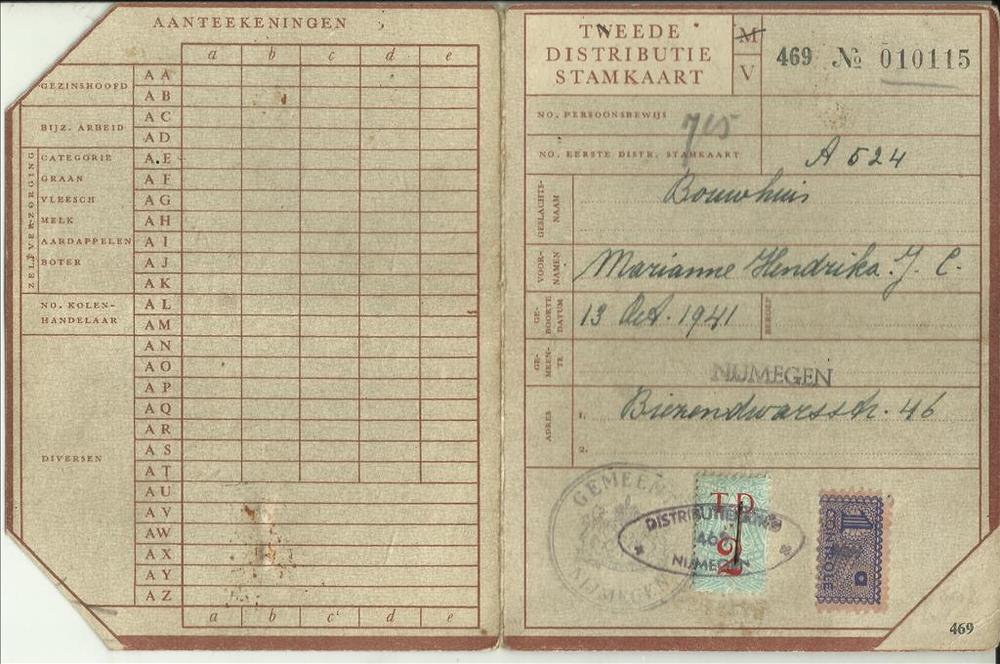 AANTEEKENINGEN
a b c d e
GEZINSHOOFD
A A
A B
BIJZ. ARBEID
A C
A D
ZELFVERZORGING
CATEGORIE A.E
GRAAN A F
VLEESCH A G
MELK A H
AARDAPPELEN A I
BOTER A J
A K
NO. KOLEN-
HANDELAAR
A L
A M
A N
A O
A P
A Q
A R
A S
DIVERSEN
A T
A U
A V
A W
A X
A Y
A Z
a b c d e
TWEEDE
DISTRIBUTIE
STAMKAART
M
V
469 № 010115
NO. PERSOONSBEWIJS
715
NO. EERSTE DISTR. STAMKAART A 524
GESLACHTS-
NAAM
Bouwhuis
VOOR-
NAMEN
Marianne Hendrika. J. C.
GE-
BOORTE
DATUM
13 Oct. 1941
BEROEP
GE-
MEEN-
TE
NIJMEGEN
ADRES
1. Biezendwarsstr. 46
2.
GEMEEN
NIJMEGEN
T D
2
DISTRIBUTIEKRING
469
NIJMEGEN
1
CONTROLE
469